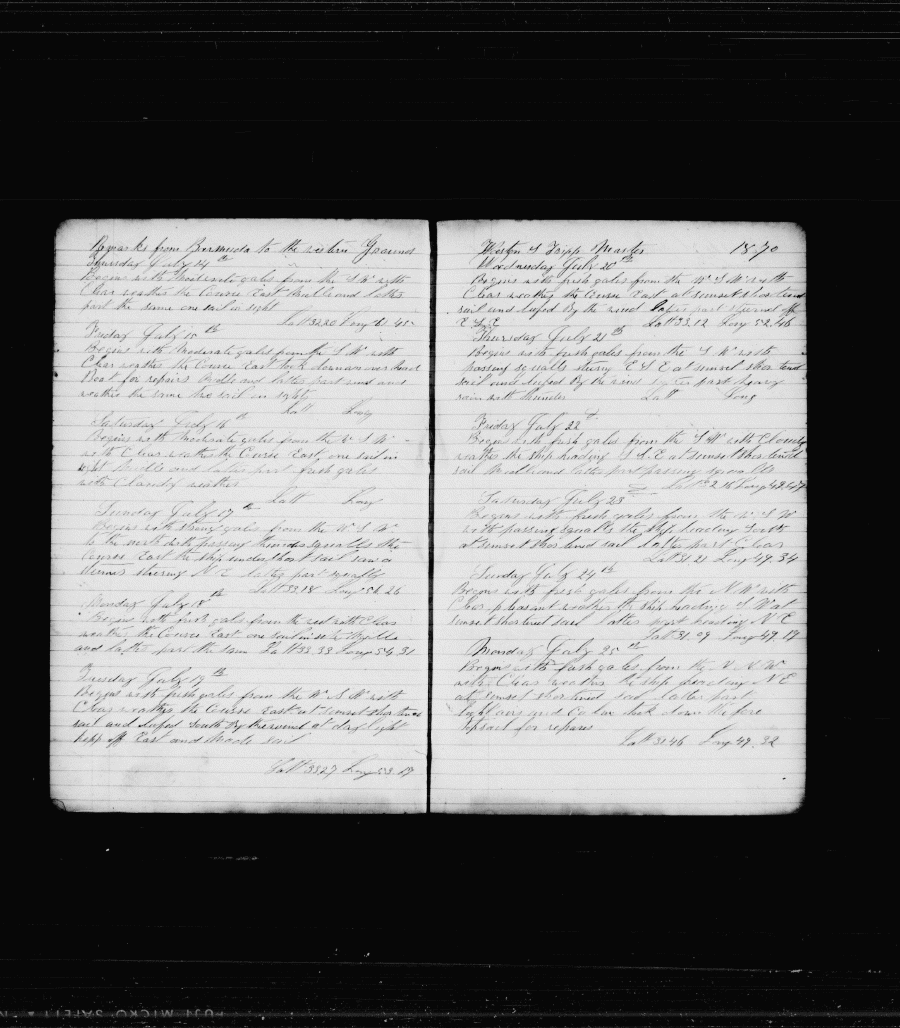 Remarks from Bermuda to the western Grounds
Thursday July 14th
Begins with Moderate gales from the S W with
Clear weather the Course East Middle and latter
part the same one sail in sight
Latt 32.20 Long 61.45
Friday July 15th
Begins with Moderate gales from the S W with
Clear weather the Course East took down
Boat for repairs Middle and latter part wind and
weather the same two sail in sight
Latt Long
Saturday July 16th
Begins with Moderate gales from the W S W
with Clear weather the Course East one sail in
sight Middle and latter part fresh gales
with Cloudy weather
Latt Long
Sunday July 17th
Begins with strong gales from the W S W
to the north with passing thunder squalls the
Course East the ship under short sail
steering N E latter part
Latt 33.18 Long 56.26
Monday July 18th
Begins with fresh gales from the with Clear
weather the Course East one sail in sight Middle
and latter part the same Latt 33.33 Long 54.31
Tuesday July 19th
Begins with fresh gales from the W S W with
Clear weather the Course East at sunset shortened
sail and luffed South By the wind at day light
kept off East and Made sail
Latt 33.27 Long 53.17
Weston S Tripp Master 1870
Wednesday July 20th
Begins with fresh gales from the W S W with
Clear weather the Course East at sunset shortened
sail and luffed By the wind latter part steered off
E S E Latt 33.12 Long 52.46
Thursday July 21th
Begins with fresh gales from the S W with
passing squalls steering E S E at sunset shortened
sail and luffed By the wind latter part heavy
rain with thunder Latt Long
Friday July 22th
Begins with fresh gales from the S W with Cloudy
weather the ship heading S S E at sunset shortened
sail Middle and latter part passing squalls
Latt 32.16 Long 49.47
Saturday July 23
Begins with fresh gales from the W S W
with passing squalls the ship heading South
at sunset shortened sail latter part Clear
Latt 31.21 Long 49.34
Sunday July 24th
Begins with fresh gales from the N W with
Clear pleasant weather the ship heading S W at
sunset shortened sail latter part heading N E
Latt 31.09 Long 49.17
Monday July 25th
Begins with fresh gales from the N N W
with Clear weather the ship heading N E
at sunset shortened sail latter part
light airs and Calm took down the fore
topsail for repairs
Latt 31.46 Long 49.32